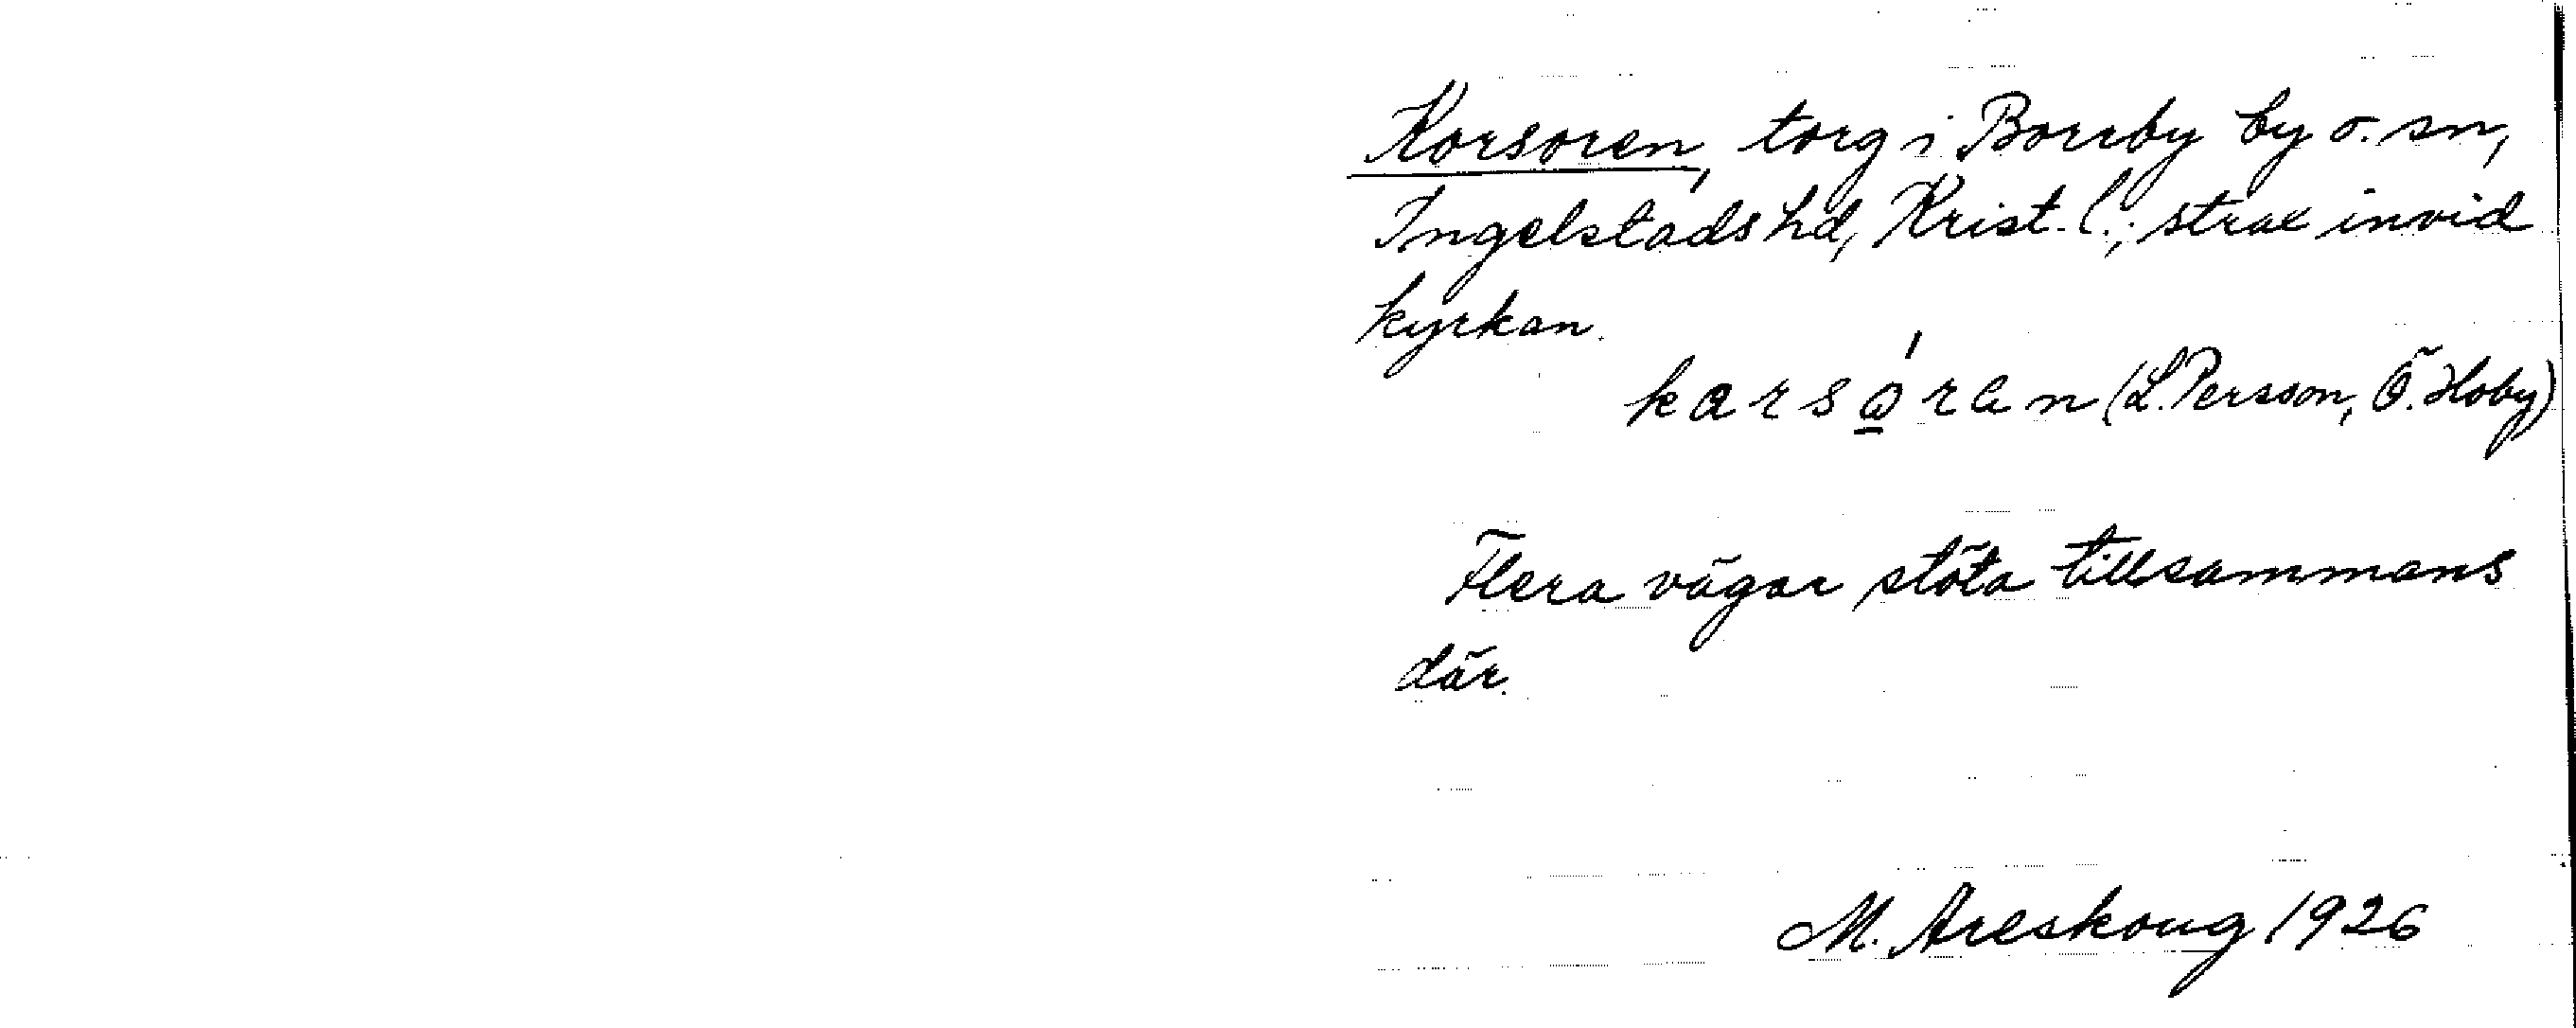 Korsoren, torg i Borrby by o. sn,
Ingelstads hd, Krist. l.; strax invid
kyrkan.
karsọ̱́ran (L. Persson, Ö. Hoby)
Flera vägar stöta tillsammans
där.
M. Areskoug 1926